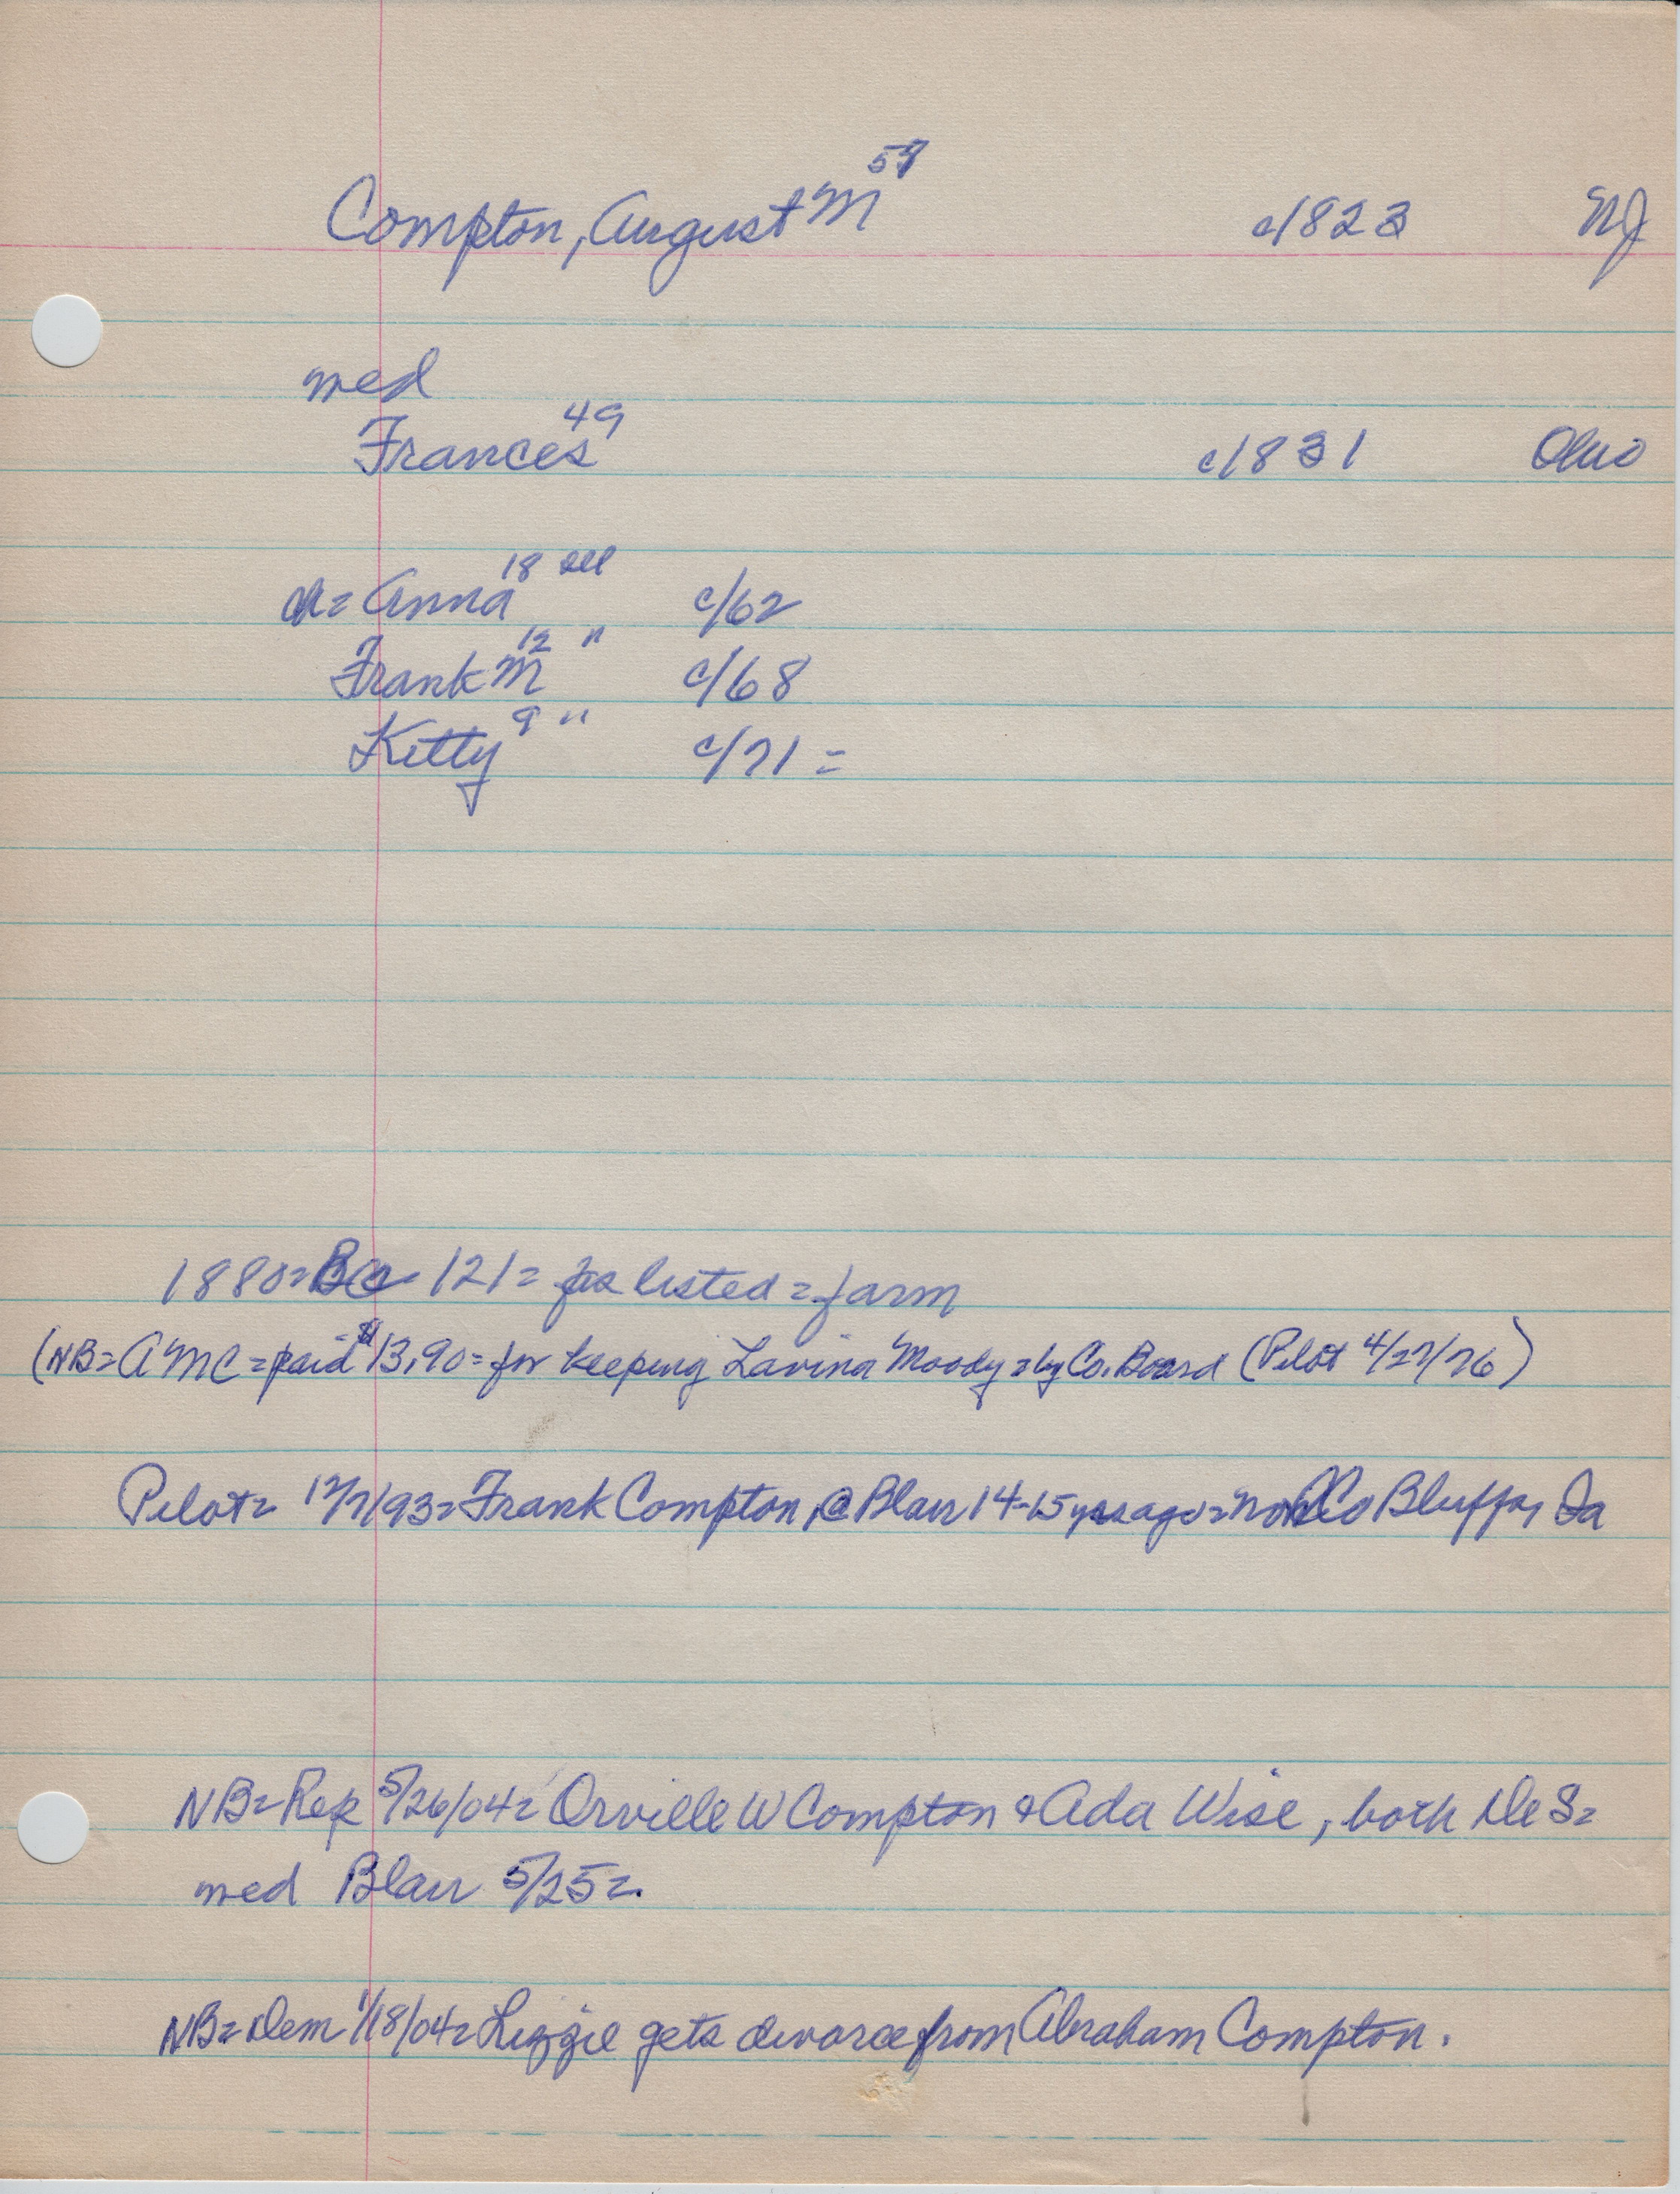 Compton, August M 57 c/823 NJ
med
Frances 49 c/831 Ohio
ch= Anna 18 Ill c/62
Frank M 12 " c/68
Kitty 9 " c/71 =
1880= 121= listed = farm
(NB= AMC = paid $13.90= for keeping Lavina Moody = by Co. Board (Pilot 4/27/76)
Pilot= 12/7/93= Frank Compton, @ Blair 14-15 yrs ago = now Co Bluffs, Ia
NB= Rep 5/26/04= Orville W Compton & Ada Wise, both De S=
med Blair 5/25=.
NB= Dem 1/18/04= Lizzie gets divorce from Abraham Compton.